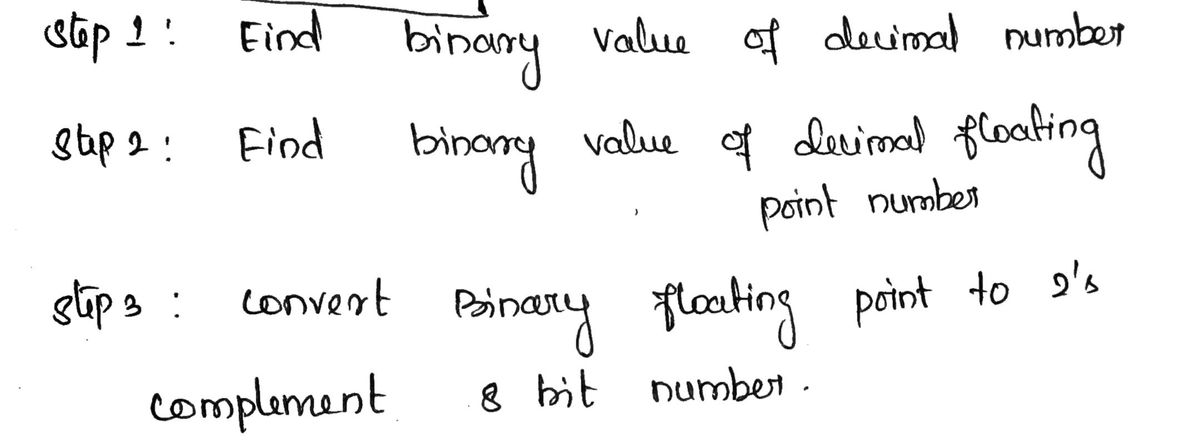 Step 1 : Find binary value of decimal number
Step 2 : Find binary value of decimal floating
point number
Step 3 : convert Binary floating point to 2's
complement 8 bit number.